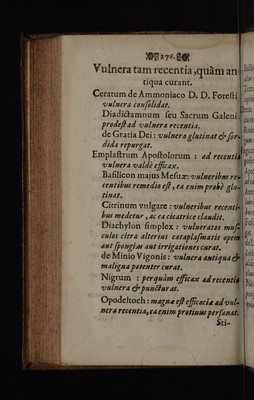 276.
Vulnera tam recentia, quàm an-
tiqua curant.
Ceratum de Ammoniaco D. D. Foresti
vulnera consolidat.
Diadictamnum seu Sacrum Galeni
prodest ad vulnera recentia.
de Gratia Dei: vulnera glutinat & sor-
dida repurgat.
Emplastrum Apostolorum: ad recentia
vulnera valdè efficax.
Basilicon majus Mesuæ: vulneribus re-
centibus remedio est, ea enim probè glu-
tinat.
Citrinum vulgare: vulneribus recenti-
bus medetur, ac ea cicatrice claudit.
Diachylon simplex: vulneratos mus-
culos citra alterius cataplasmatis opem
aut spongiæ aut irrigationes curat.
de Minio Vigonis: vulnera antiqua &
maligna potenter curat.
Nigrum: perquàm efficax ad recentia
vulnera & puncturas.
Opodeltoch: magnæ est efficaciæ ad vul-
nera recentia, ea enim protinus persanat.
Sti-